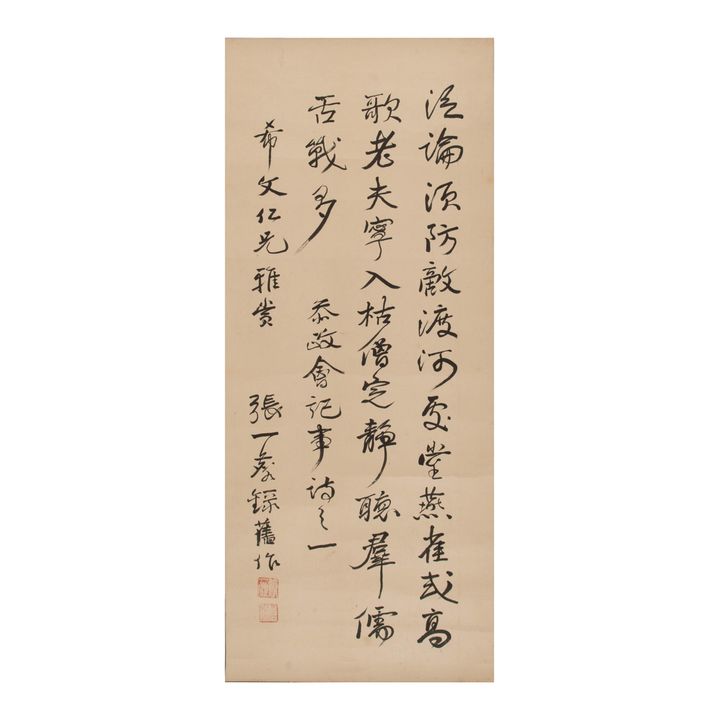 泛論須防敵渡河處堂燕雀或高
歌老夫寧入枯僧定靜聽羣儒
舌戰多 參政會記事詩之一
希文仁兄雅賞 張一麐錄舊作